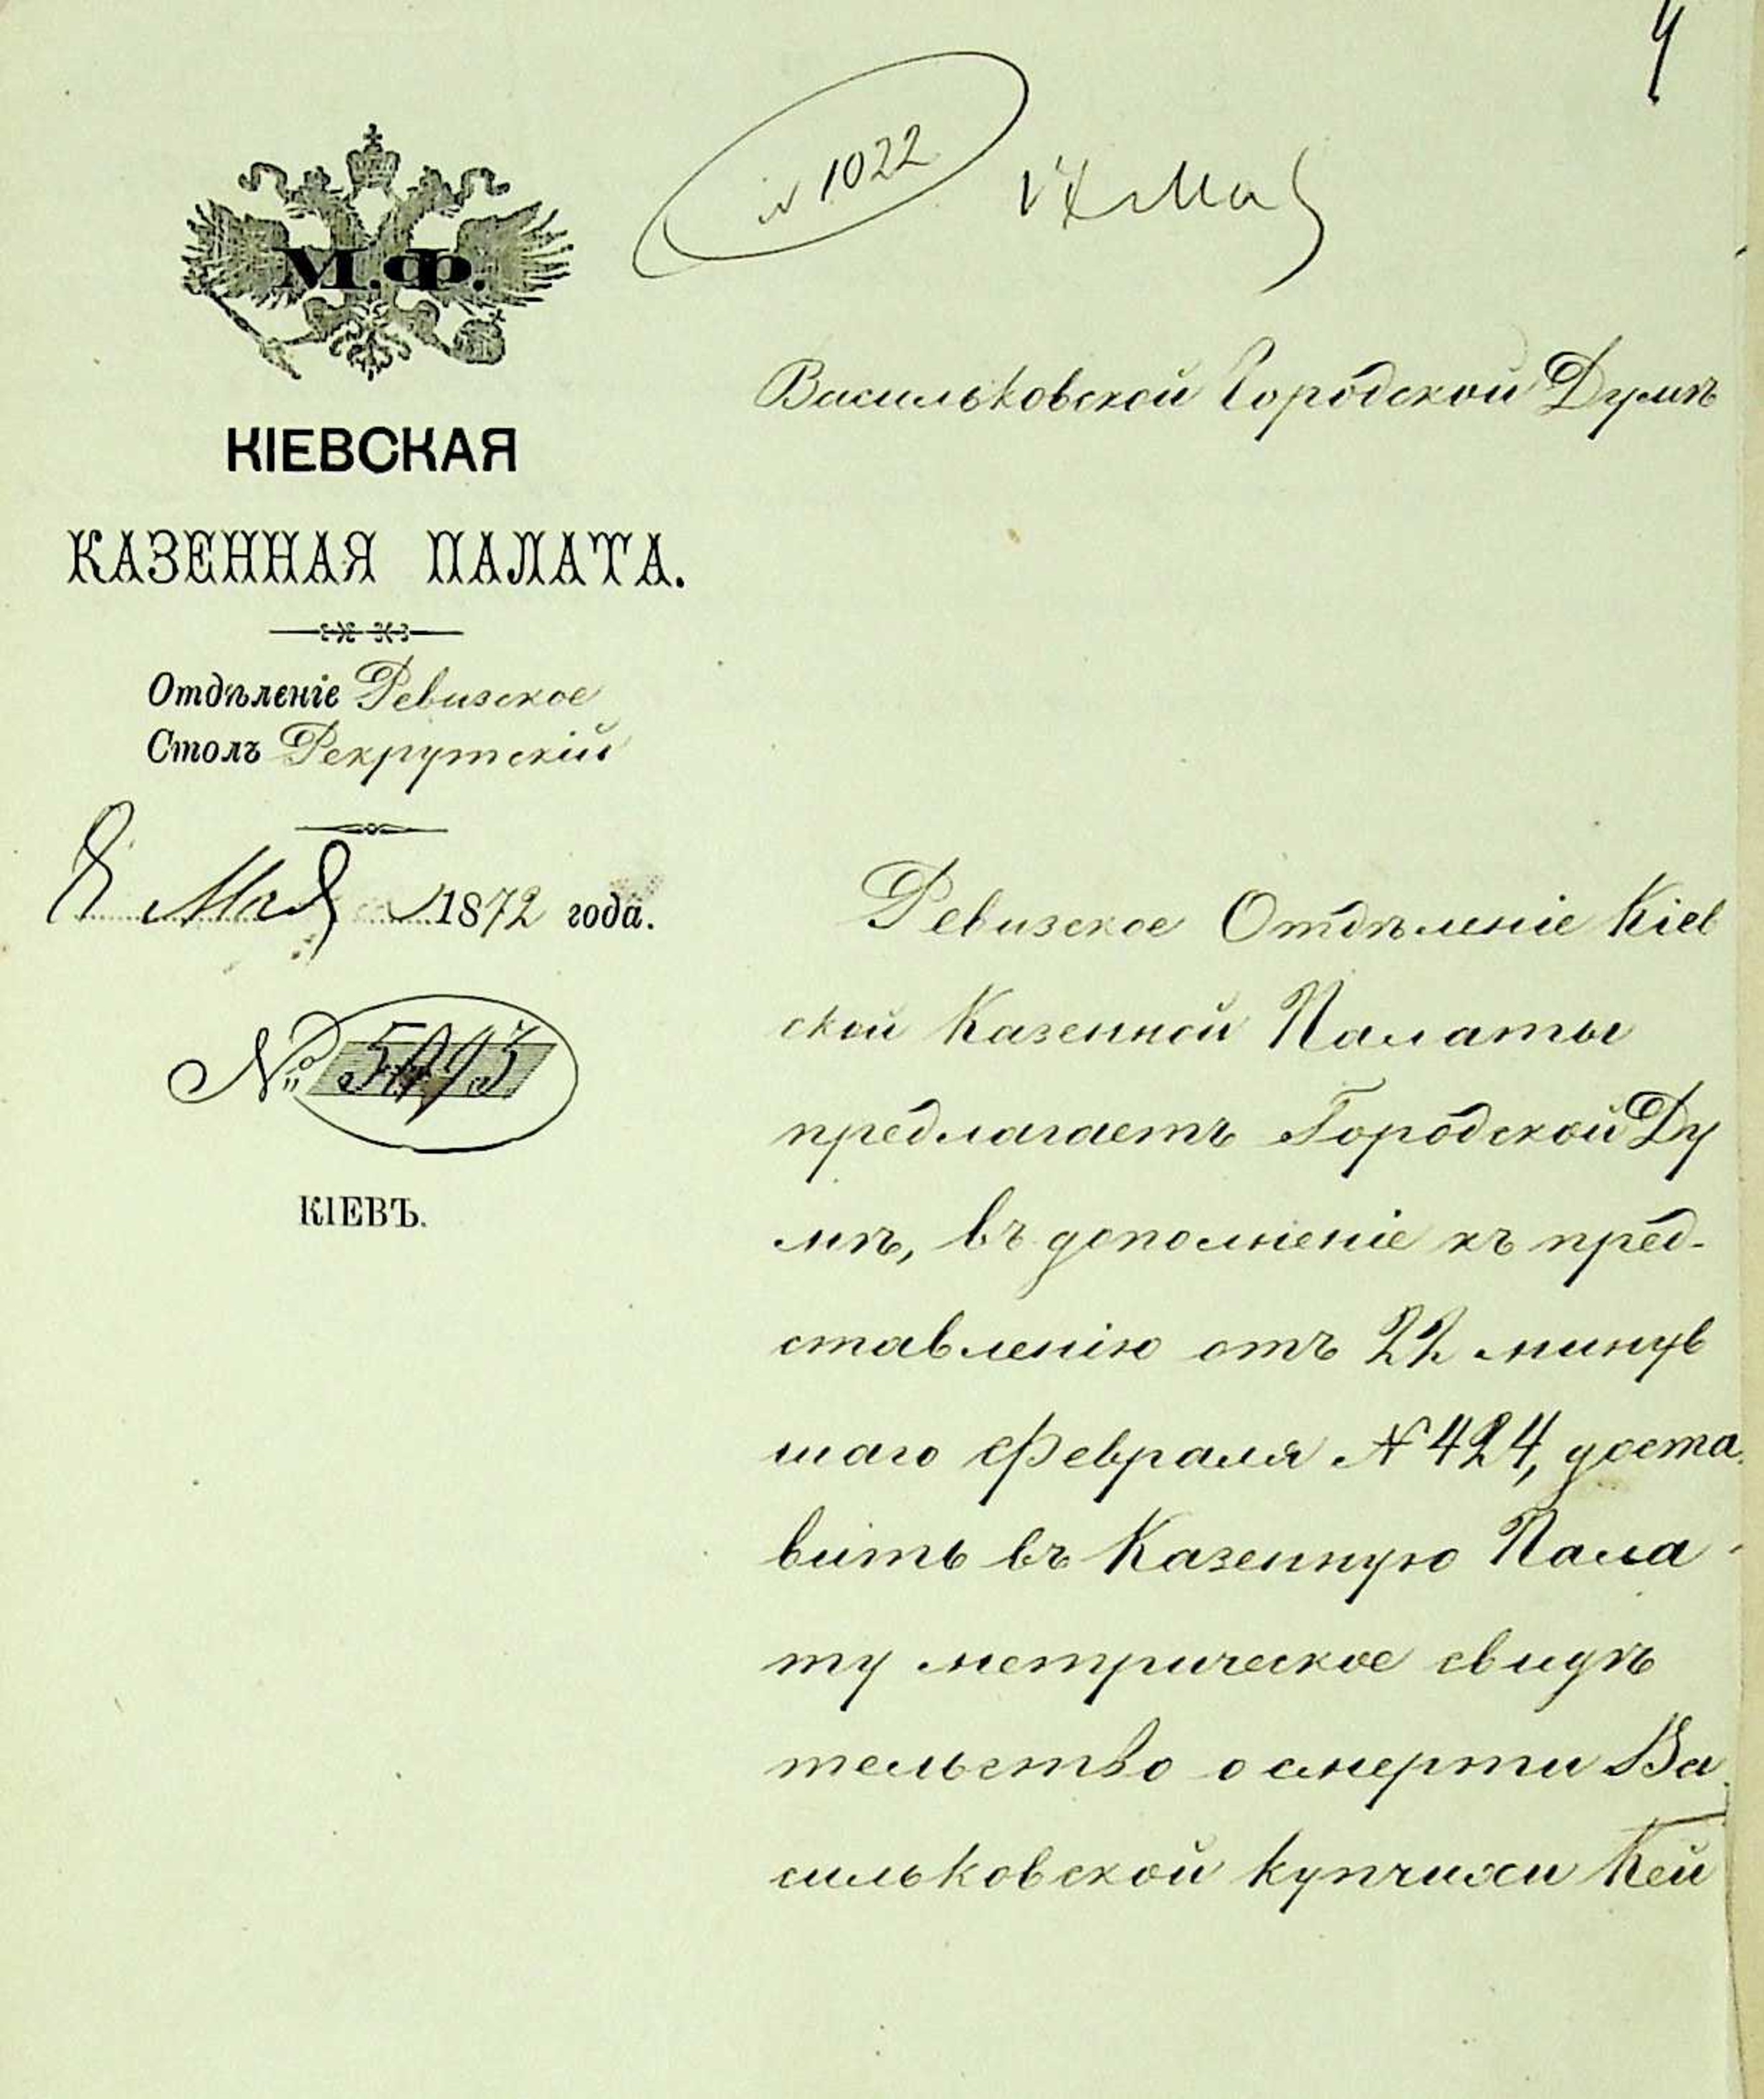 4
№ 1022
М.Ф.
Васильковской Городской Думѣ
КІЕВСКАЯ
КАЗЕННАЯ ПАЛАТА.
Отдѣленіе Ревизское
Столъ Рекрутскій
8 Мая 1872 года.
№
КІЕВЪ.
Ревизское Отдѣленіе Кіев
ской Казенной Палаты
предлагаетъ Городской Ду
мѣ, въ дополненіе къ пред-
ставленію отъ 22 минув
шаго Февраля № 424, доста
вить въ Казенную Пала
ту метрическое свидѣ
тельство о смерти Ва
сильковской купчихи Кей